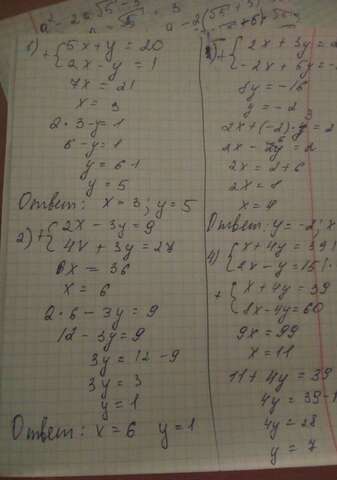 1) + { 5x + y = 20
2x - y = 1
7x = 21
x = 3
2 · 3 - y = 1
6 - y = 1
y = 6 - 1
y = 5
Ответ: x = 3; y = 5
2) + { 2x - 3y = 9
4x + 3y = 27
6x = 36
x = 6
2 · 6 - 3y = 9
12 - 3y = 9
3y = 12 - 9
3y = 3
y = 1
Ответ: x = 6 y = 1
+ { 2x + 3y = 2
-2x + 5y = -
8y = -16
y = -2
2x + (-2) · 3 = 2
2x = 2 + 6
2x = 8
x = 4
Ответ: y = -2; x
4) { x + 4y = 39 |
2x - y = 15 | ·
+ { x + 4y = 39
8x - 4y = 60
9x = 99
x = 11
11 + 4y = 39
4y = 39 - 1
4y = 28
y = 7